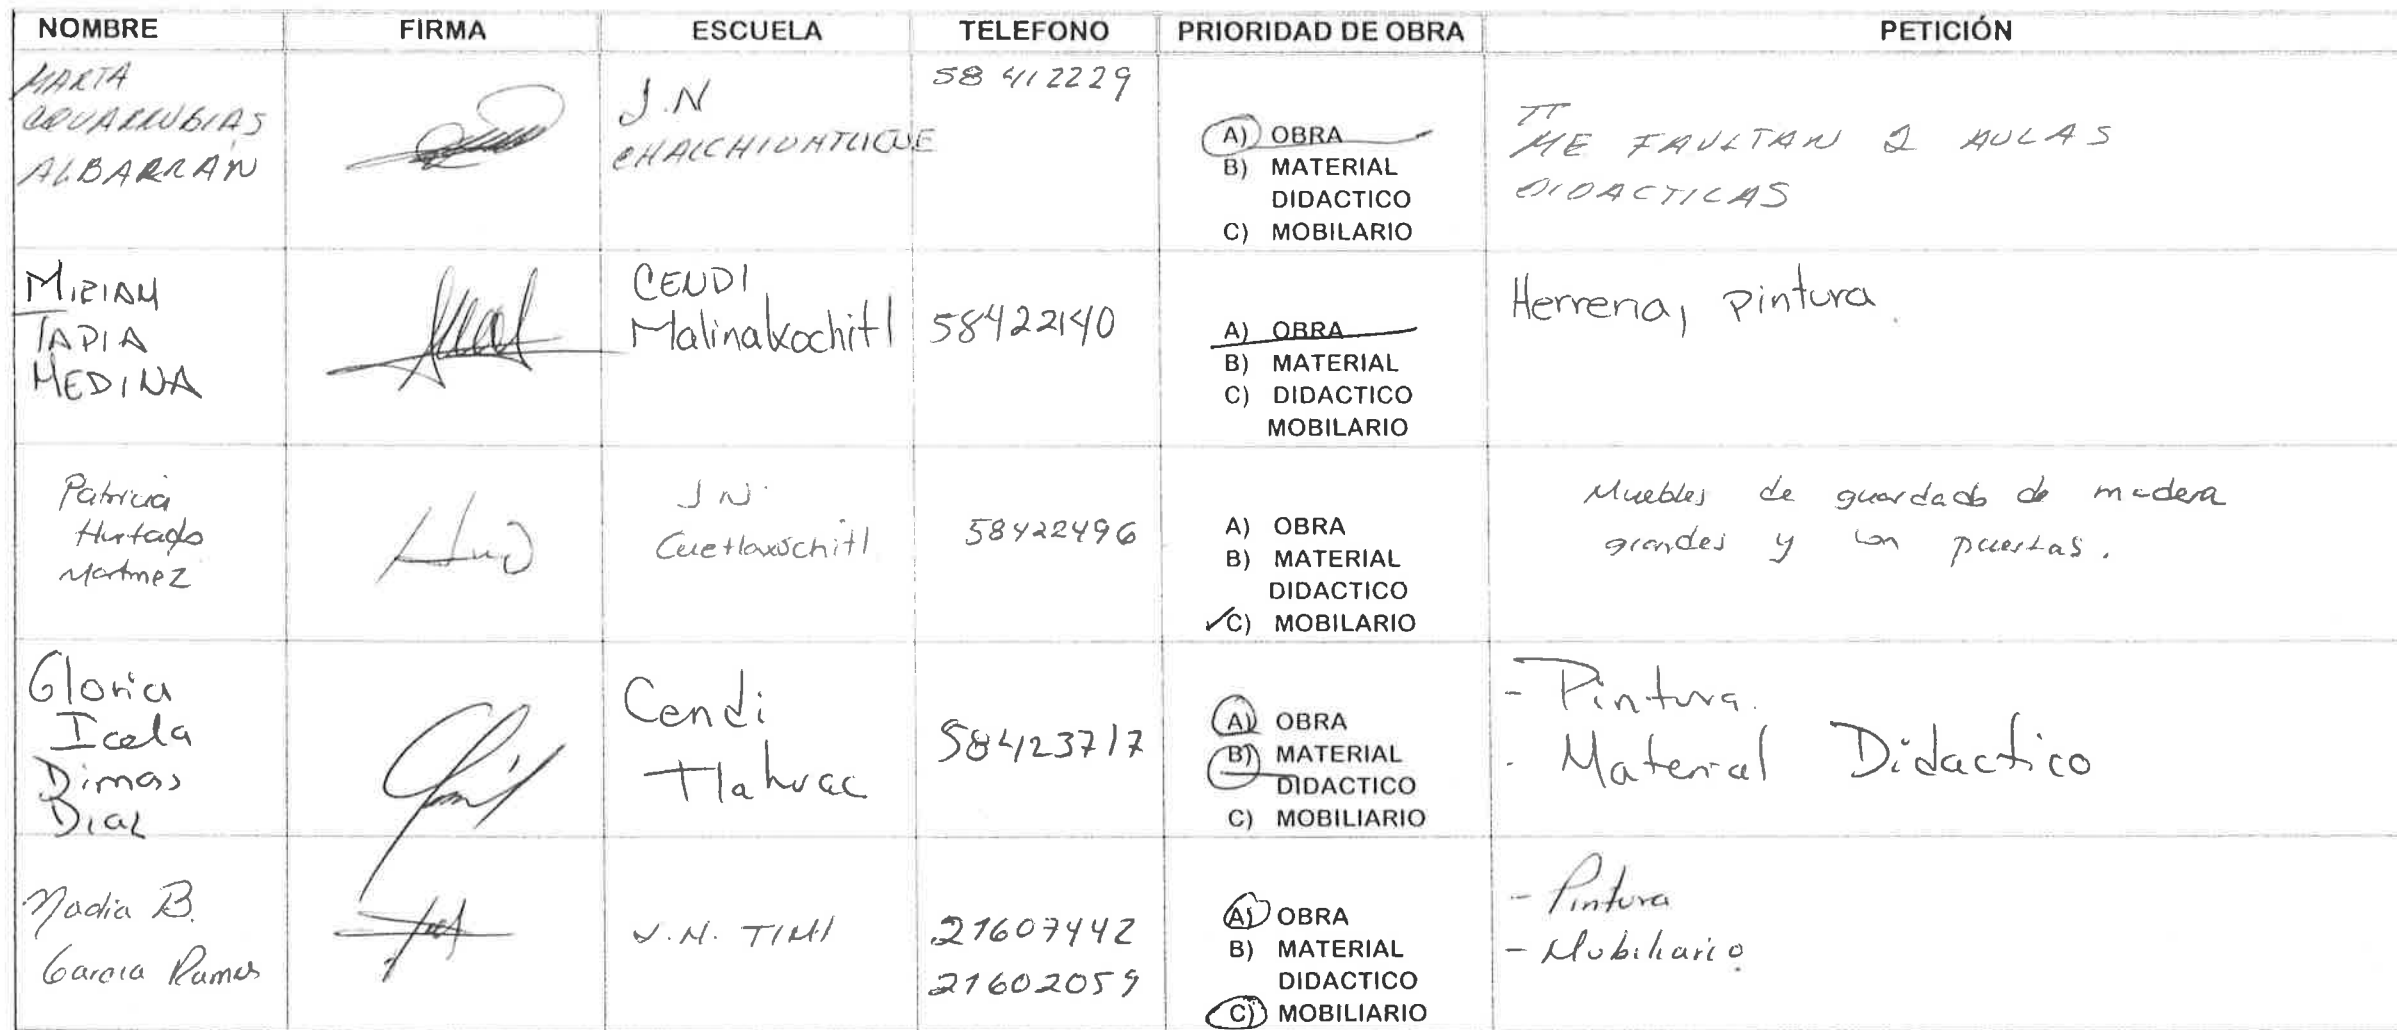 NOMBRE FIRMA ESCUELA TELEFONO PRIORIDAD DE OBRA PETICIÓN
MARTA
COVARRUBIAS
ALBARRÁN
J.N
CHALCHIUHTLICUE
58 412229
A) OBRA
B) MATERIAL
DIDACTICO
C) MOBILARIO
ME FAULTAN 2 AULAS
DIDACTICAS
MIRIAM
TAPIA
MEDINA
CENDI
Malinalxochitl
58422140
A) OBRA
B) MATERIAL
C) DIDACTICO
MOBILARIO
Herreria, pintura.
Patricia
Hurtado
Martinez
J N.
Cuetlaxochitl
58422496
A) OBRA
B) MATERIAL
DIDACTICO
C) MOBILARIO
Muebles de guardado de madera
grandes y con puertas.
Gloria
Icela
Dimas
Diaz
Cendi
Tlahuac
58423717
A) OBRA
B) MATERIAL
DIDACTICO
C) MOBILIARIO
- Pintura.
- Material Didactico
Nadia B.
Garcia Ramos
J.N. TIMI
21607442
21602059
A) OBRA
B) MATERIAL
DIDACTICO
C) MOBILIARIO
- Pintura
- Mobiliario